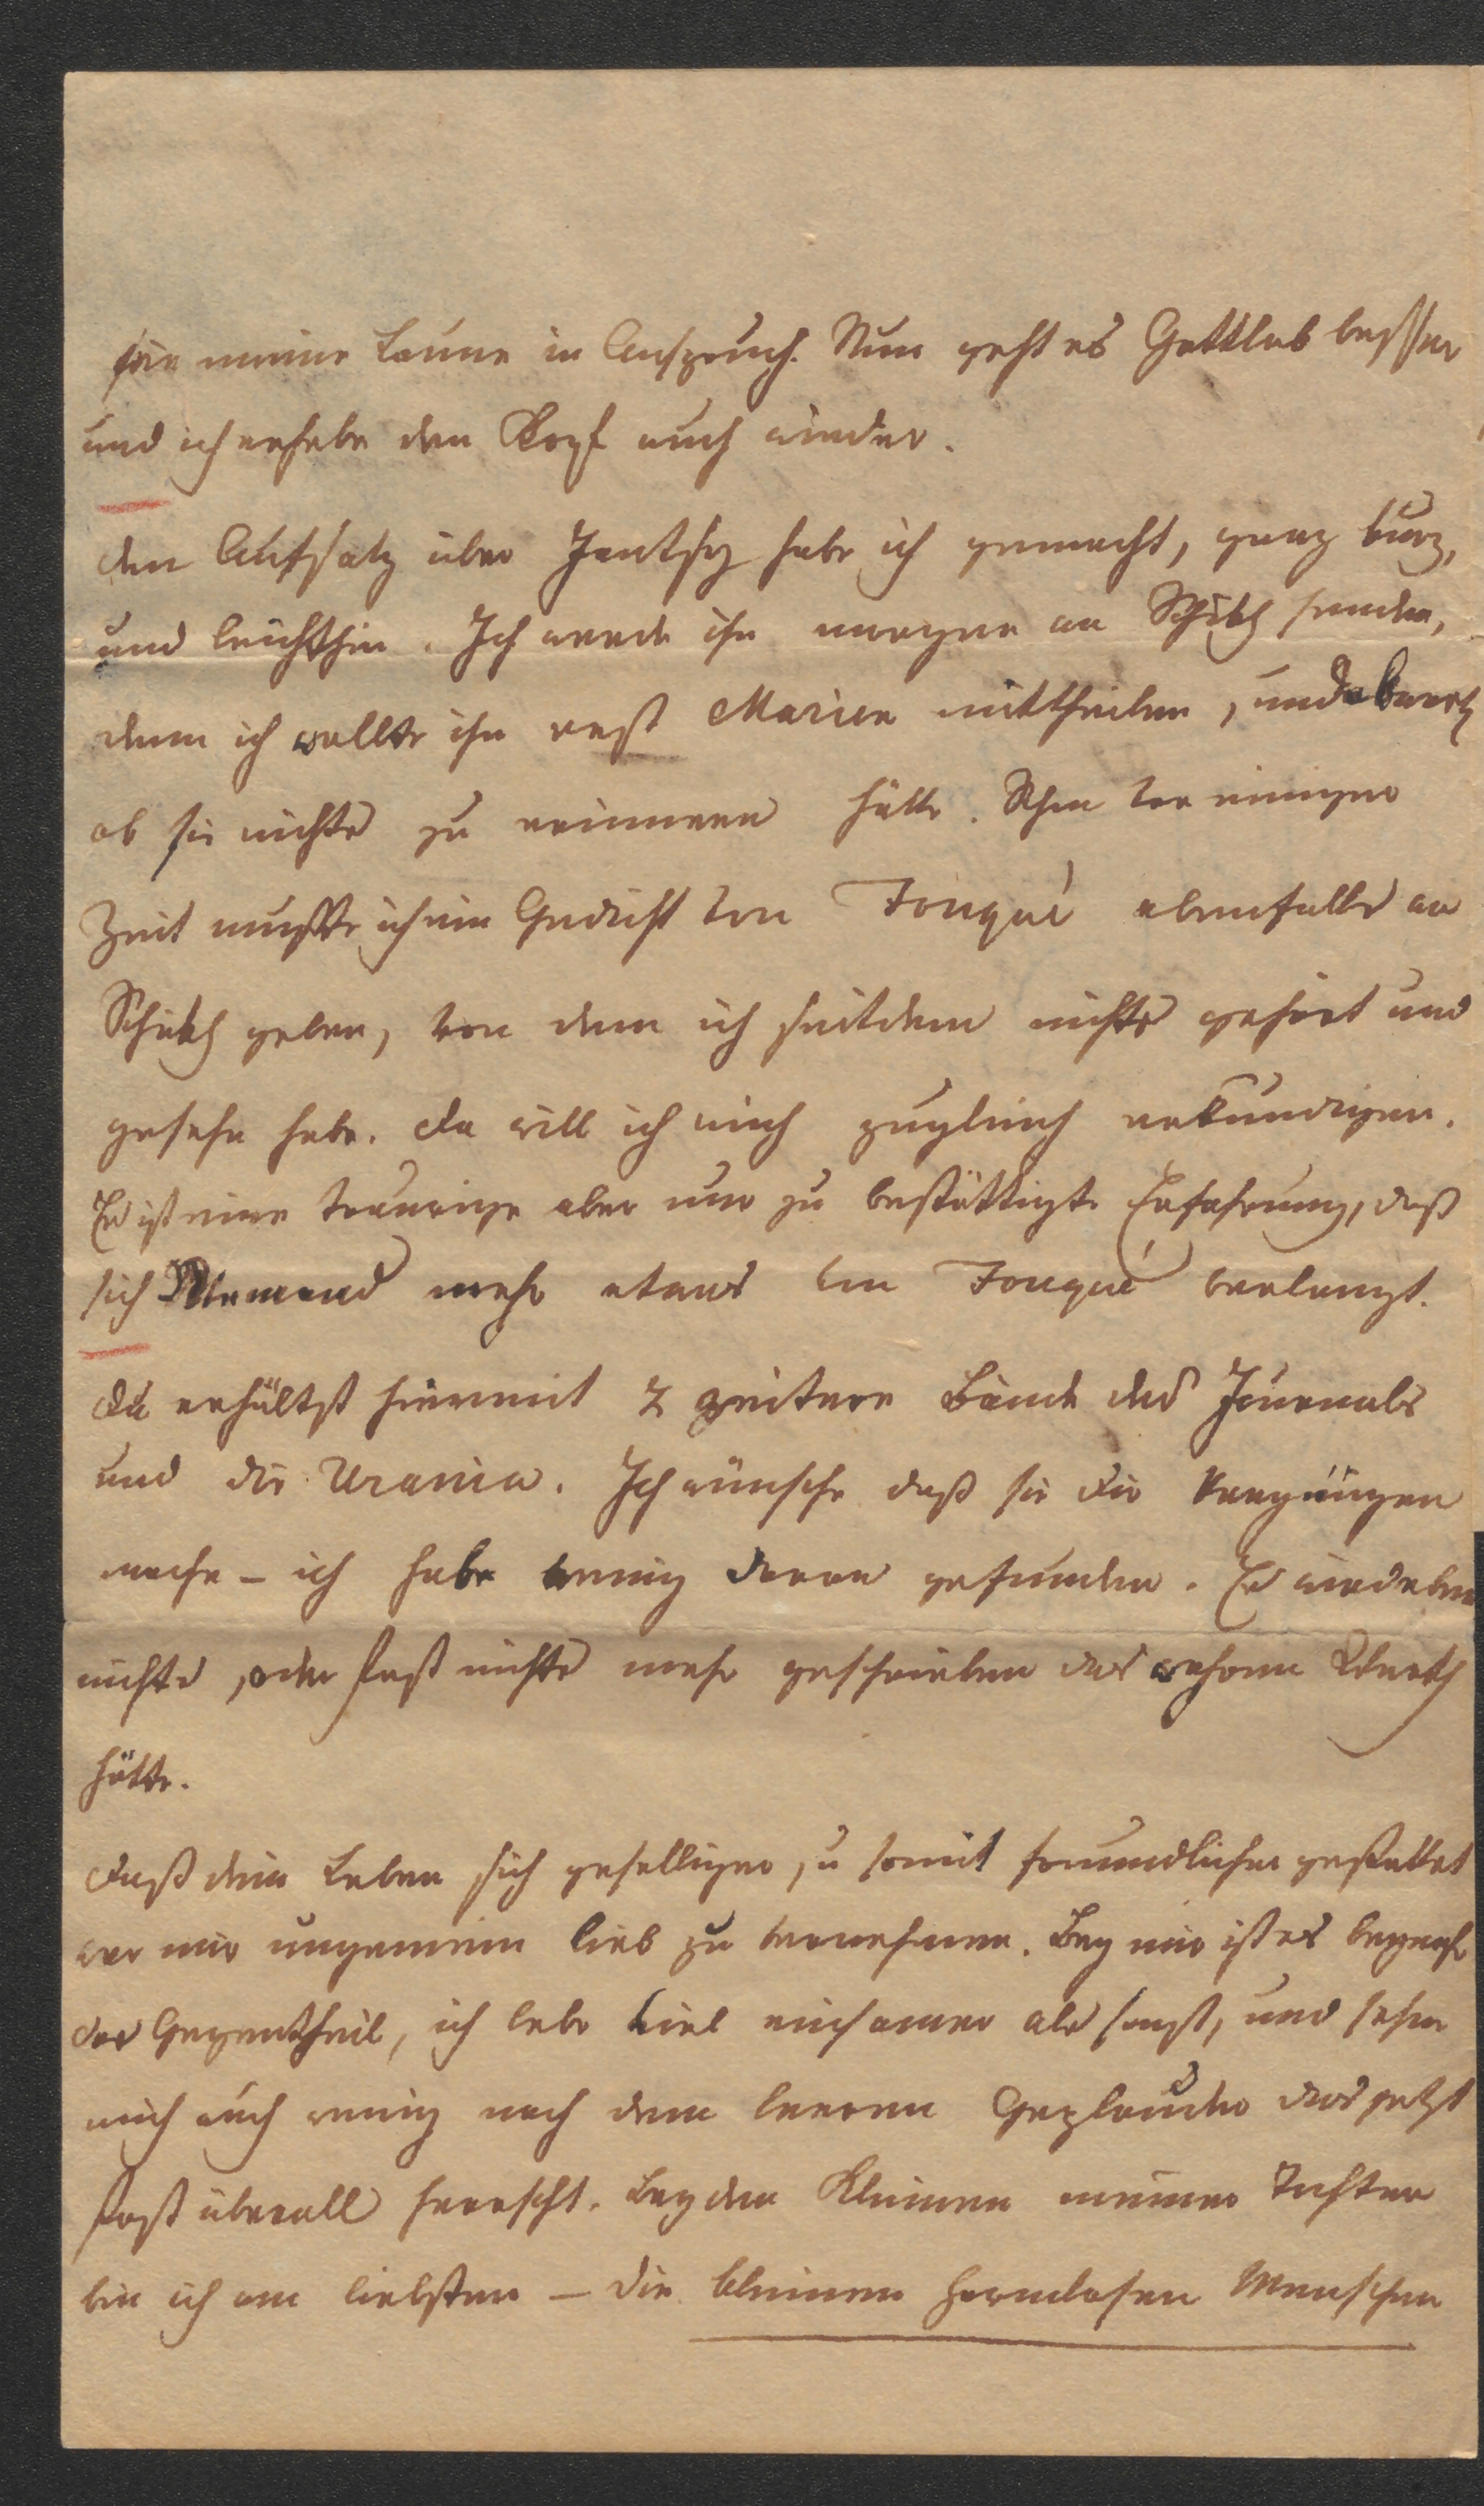 für meine Laune in Anspruch. Nun geht es Gottlob besser
und ich erhebe den Kopf auch wieder.
Den Aufsatz über habe ich gemacht, ganz kurz,
und leichthin. Ich werde ihn morgen an Schikh senden,
denn ich wollte ihn erst Marien mittheilen, und
ob sie nichts zu erinnern hätte. Schon vor einiger
Zeit mußte ich ein Gedicht von Fouqué ebenfalls an
Schikh geben, von dem ich seitdem nichts gehört und
gesehn habe. Da will ich mich zugleich erkundigen.
Es ist eine traurige aber nur zu bestättigte Erfahrung, daß
sich Niemand mehr etwas von Fouqué verlangt.
Du erhältst hiermit 2 weitere Bände des Journals
und die Urania. Ich wünsche daß sie dir Vergnügen
mache – ich habe wenig daran gefunden. Es wird eben
nichts, oder fast nichts mehr geschrieben das wahren Werth
hätte.
Daß dein Leben sich geselliger, u somit freundlicher gestaltet
war mir ungemein lieb zu vernehmen. Bey mir ist es
das Gegentheil, ich lebe viel einsamer als sonst, und sehne
mich auch wenig nach dem leeren Geplauder das jetzt
fast überall herrscht. Bey den Kleinen meiner Tochter
bin ich am liebsten – die kleinen harmlosen Menschen